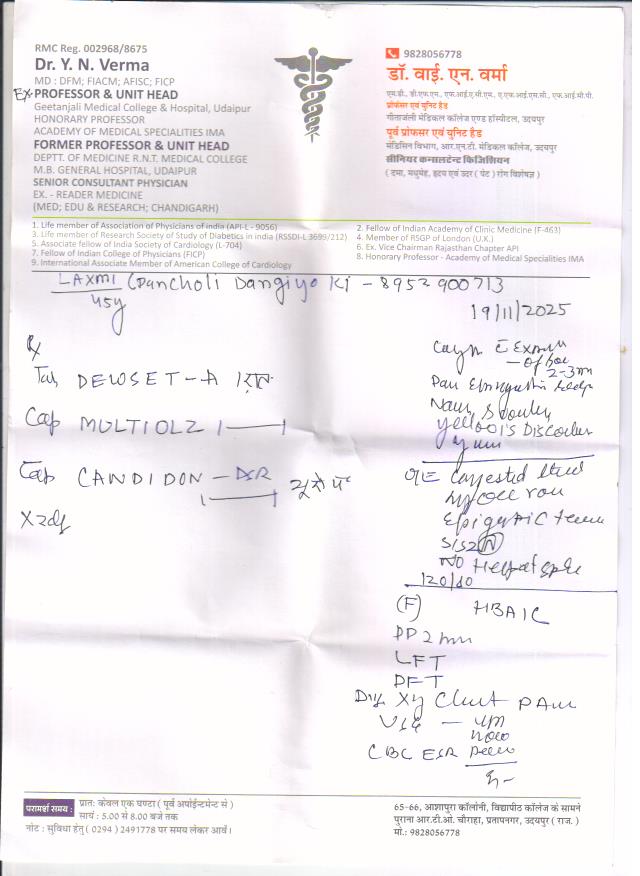 RMC Reg. 002968/8675
Dr. Y. N. Verma
MD : DFM; FIACM; AFISC; FICP
Ex PROFESSOR & UNIT HEAD
Geetanjali Medical College & Hospital, Udaipur
HONORARY PROFESSOR
ACADEMY OF MEDICAL SPECIALITIES IMA
FORMER PROFESSOR & UNIT HEAD
DEPTT. OF MEDICINE R.N.T. MEDICAL COLLEGE
M.B. GENERAL HOSPITAL, UDAIPUR
SENIOR CONSULTANT PHYSICIAN
EX. - READER MEDICINE
(MED; EDU & RESEARCH; CHANDIGARH)
9828056778
डॉ. वाई. एन. वर्मा
एम.डी., डी.एफ.एम., एफ.आई.ए.सी.एम., ए.एफ.आई.एस.सी., एफ.आई.सी.पी.
प्रोफेसर एवं यूनिट हैड
गीतांजली मेडिकल कॉलेज एण्ड हॉस्पीटल, उदयपुर
पूर्व प्रोफेसर एवं युनिट हैड
मेडिसिन विभाग, आर.एन.टी. मेडिकल कॉलेज, उदयपुर
सीनियर कन्सलटेन्ट फिजिशियन
( दमा, मधुमेह, हृदय एवं उदर ( पेट ) रोग विशेषज्ञ )
1. Life member of Association of Physicians of india (API-L - 9056)
3. Life member of Research Society of Study of Diabetics in india (RSSDI-L 3699/212)
5. Associate fellow of India Society of Cardiology (L-704)
7. Fellow of Indian College of Physicians (FICP)
9. International Associate Member of American College of Cardiology
2. Fellow of Indian Academy of Clinic Medicine (F-463)
4. Member of RSGP of London (U.K.)
6. Ex. Vice Chairman Rajasthan Chapter API
8. Honorary Professor - Academy of Medical Specialities IMA
LAXMI (Pancholi Dangiyo Ki - 8952900713
45y
19/11/2025
Rx
Tab DEWSET-A
Cap MULTIOLZ 1 1
Cap CANDIDON - DSR
1 1
2-3m
yellow
O/E Congested
S1S2 N
NO
120/80
(F) HBA1C
PP 2
LFT
Dig Xy Chest PA
CBC ESR
परामर्श समय :
प्रात: केवल एक घण्टा ( पूर्व अपोईन्टमेन्ट से )
सायं : 5.00 से 8.00 बजे तक
नोट : सुविधा हेतु ( 0294 ) 2491778 पर समय लेकर आवें।
65-66, आशापुरा कॉलोनी, विद्यापीठ कॉलेज के सामने
पुराना आर.टी.ओ. चौराहा, प्रतापनगर, उदयपुर ( राज. )
मो.: 9828056778